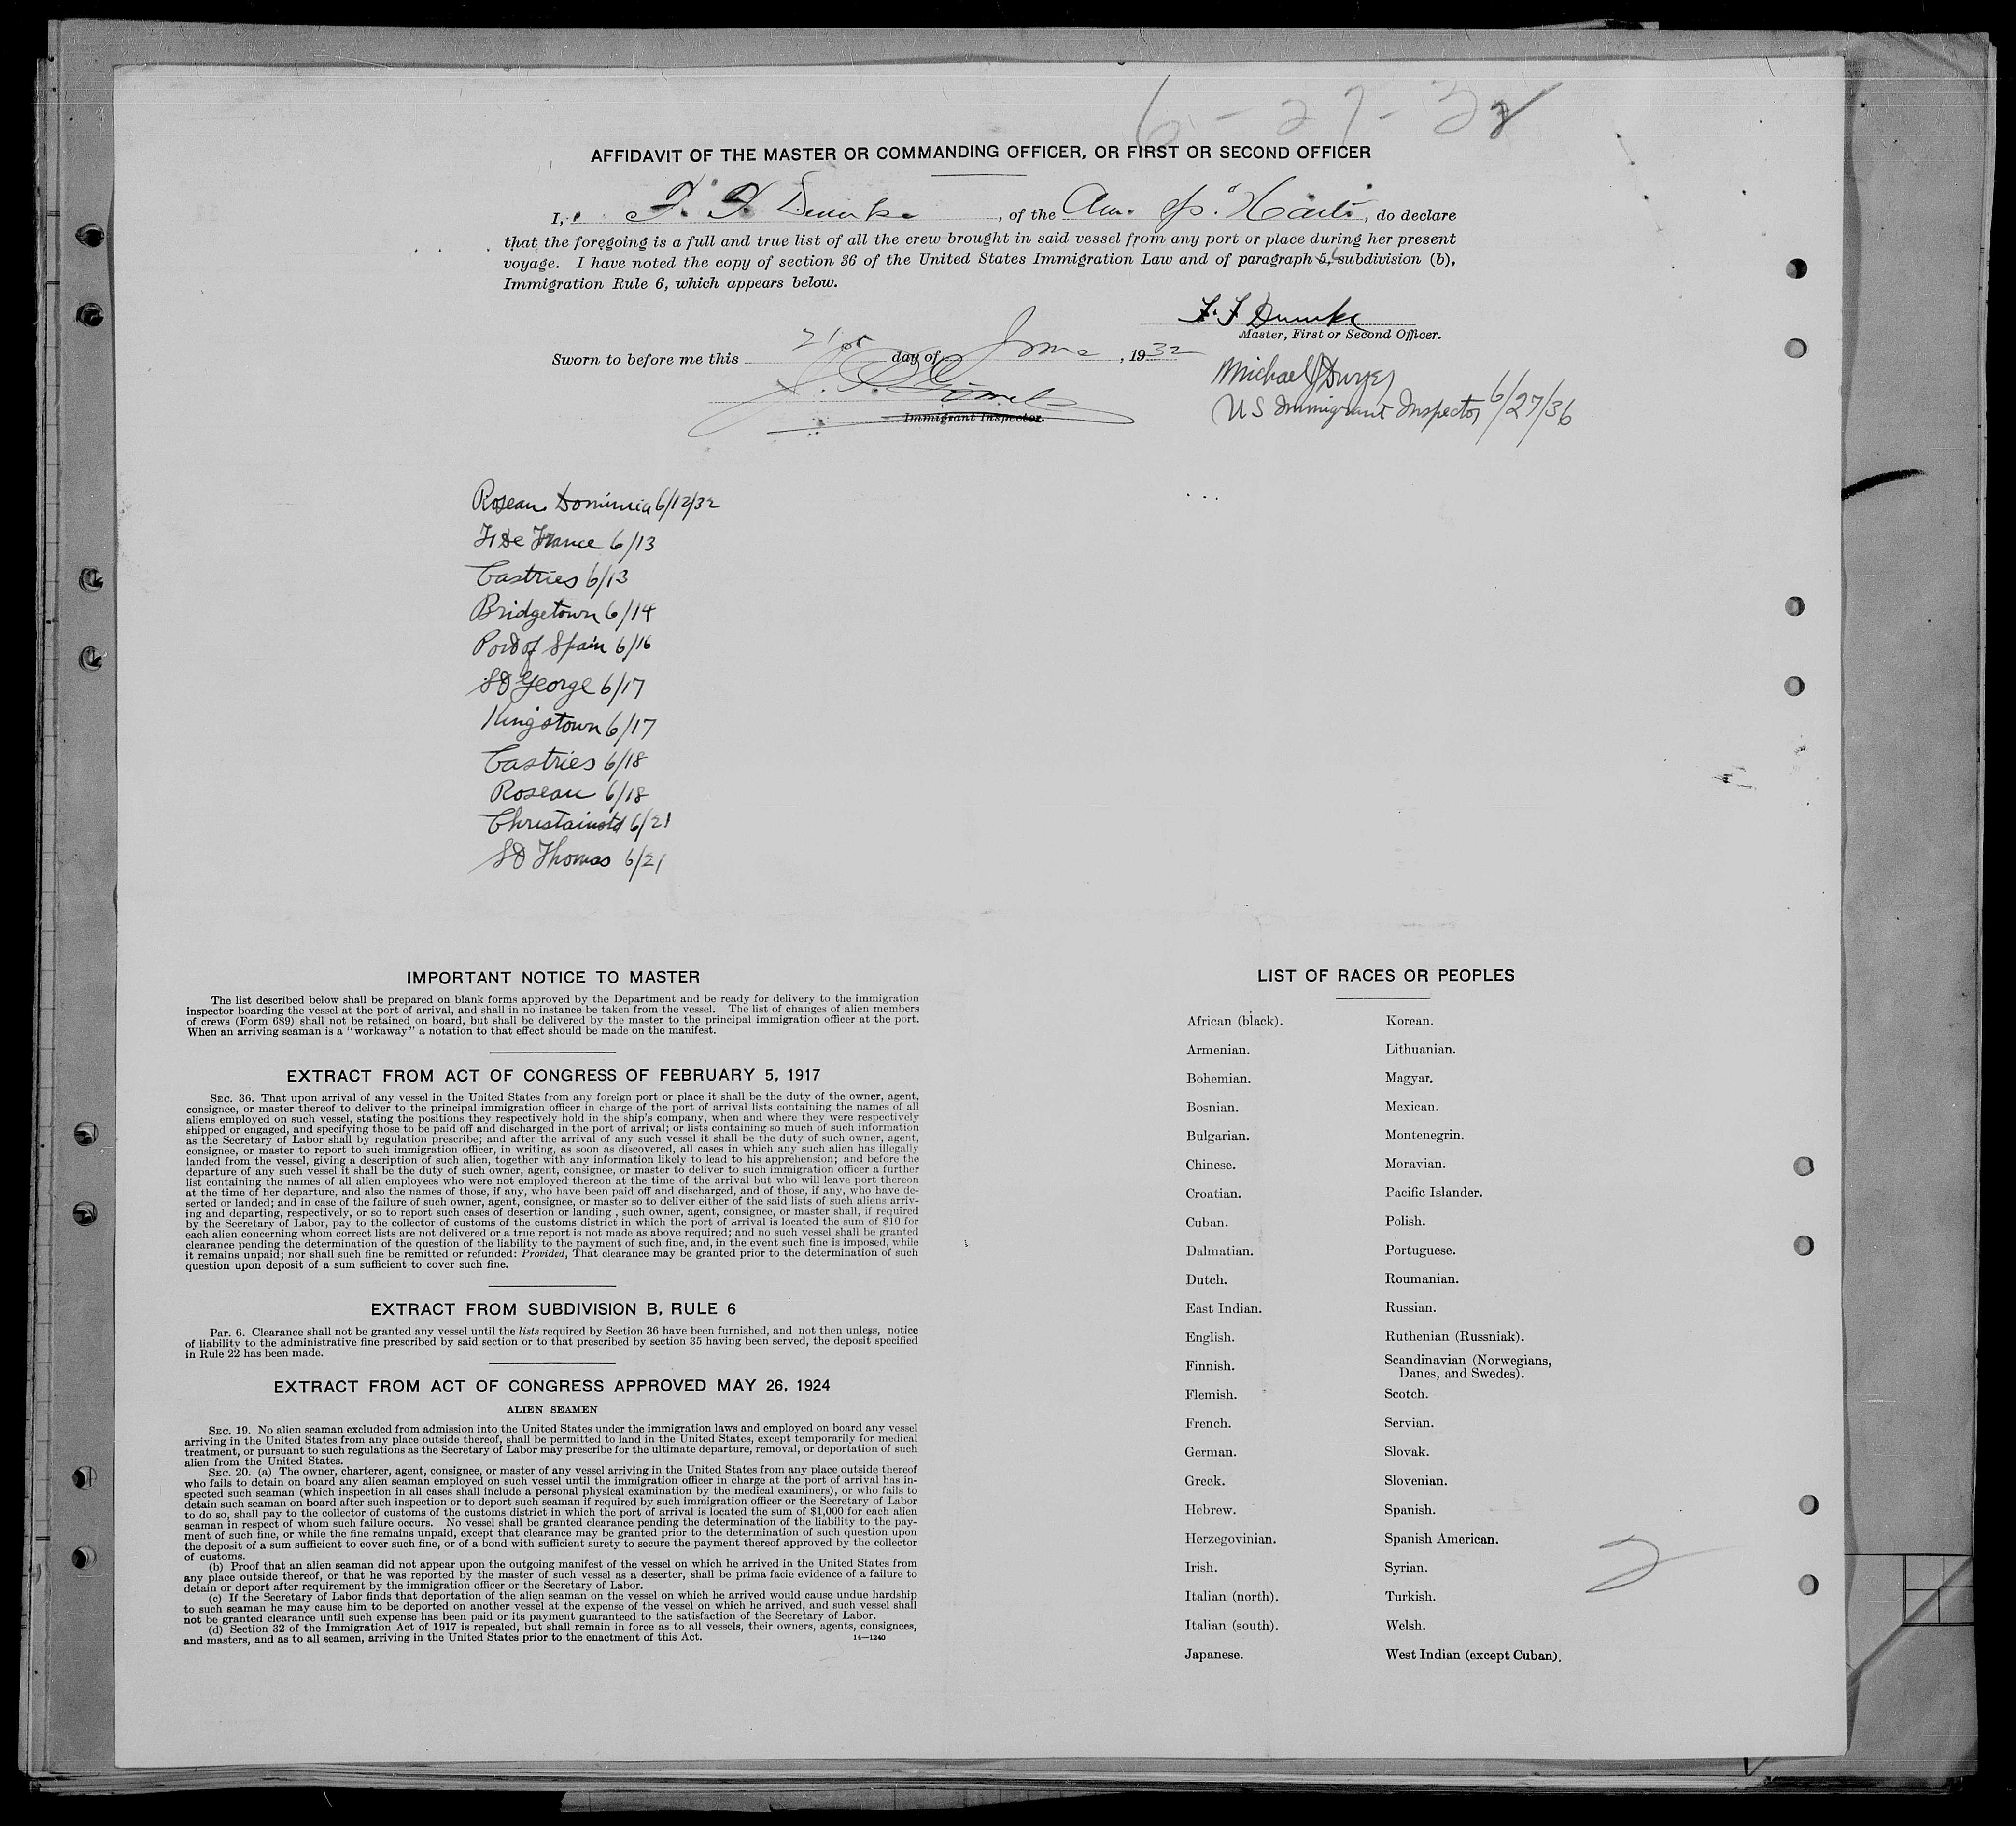 6-27-32
AFFIDAVIT OF THE MASTER OR COMMANDING OFFICER, OR FIRST OR SECOND OFFICER
I, F. F. Dumke, of the Am. S/S. "Haiti, do declare
that the foregoing is a full and true list of all the crew brought in said vessel from any port or place during her present
voyage. I have noted the copy of section 36 of the United States Immigration Law and of paragraph 5, 6 subdivision (b),
Immigration Rule 6, which appears below.
F. F. Dumke
Master, First or Second Officer.
Sworn to before me this 21st day of June, 1932
Immigrant Inspector.
Michael J Dwyer
US Immigrant Inspector 6/27/36
Roseau Dominica 6/12/32
Ft De France 6/13
Castries 6/13
Bridgetown 6/14
Port of Spain 6/16
St George 6/17
Kingstown 6/17
Castries 6/18
Roseau 6/18
Christainstd 6/21
St Thomas 6/21
IMPORTANT NOTICE TO MASTER
The list described below shall be prepared on blank forms approved by the Department and be ready for delivery to the immigration
inspector boarding the vessel at the port of arrival, and shall in no instance be taken from the vessel. The list of changes of alien members
of crews (Form 689) shall not be retained on board, but shall be delivered by the master to the principal immigration officer at the port.
When an arriving seaman is a "workaway" a notation to that effect should be made on the manifest.
EXTRACT FROM ACT OF CONGRESS OF FEBRUARY 5, 1917
SEC. 36. That upon arrival of any vessel in the United States from any foreign port or place it shall be the duty of the owner, agent,
consignee, or master thereof to deliver to the principal immigration officer in charge of the port of arrival lists containing the names of all
aliens employed on such vessel, stating the positions they respectively hold in the ship's company, when and where they were respectively
shipped or engaged, and specifying those to be paid off and discharged in the port of arrival; or lists containing so much of such information
as the Secretary of Labor shall by regulation prescribe; and after the arrival of any such vessel it shall be the duty of such owner, agent,
consignee, or master to report to such immigration officer, in writing, as soon as discovered, all cases in which any such alien has illegally
landed from the vessel, giving a description of such alien, together with any information likely to lead to his apprehension; and before the
departure of any such vessel it shall be the duty of such owner, agent, consignee, or master to deliver to such immigration officer a further
list containing the names of all alien employees who were not employed thereon at the time of the arrival but who will leave port thereon
at the time of her departure, and also the names of those, if any, who have been paid off and discharged, and of those, if any, who have de-
serted or landed; and in case of the failure of such owner, agent, consignee, or master so to deliver either of the said lists of such aliens arriv-
ing and departing, respectively, or so to report such cases of desertion or landing , such owner, agent, consignee, or master shall, if required
by the Secretary of Labor, pay to the collector of customs of the customs district in which the port of arrival is located the sum of $10 for
each alien concerning whom correct lists are not delivered or a true report is not made as above required; and no such vessel shall be granted
clearance pending the determination of the question of the liability to the payment of such fine, and, in the event such fine is imposed, while
it remains unpaid; nor shall such fine be remitted or refunded: Provided, That clearance may be granted prior to the determination of such
question upon deposit of a sum sufficient to cover such fine.
EXTRACT FROM SUBDIVISION B, RULE 6
Par. 6. Clearance shall not be granted any vessel until the lists required by Section 36 have been furnished, and not then unless, notice
of liability to the administrative fine prescribed by said section or to that prescribed by section 35 having been served, the deposit specified
in Rule 22 has been made.
EXTRACT FROM ACT OF CONGRESS APPROVED MAY 26, 1924
ALIEN SEAMEN
SEC. 19. No alien seaman excluded from admission into the United States under the immigration laws and employed on board any vessel
arriving in the United States from any place outside thereof, shall be permitted to land in the United States, except temporarily for medical
treatment, or pursuant to such regulations as the Secretary of Labor may prescribe for the ultimate departure, removal, or deportation of such
alien from the United States.
SEC. 20. (a) The owner, charterer, agent, consignee, or master of any vessel arriving in the United States from any place outside thereof
who fails to detain on board any alien seaman employed on such vessel until the immigration officer in charge at the port of arrival has in-
spected such seaman (which inspection in all cases shall include a personal physical examination by the medical examiners), or who fails to
detain such seaman on board after such inspection or to deport such seaman if required by such immigration officer or the Secretary of Labor
to do so, shall pay to the collector of customs of the customs district in which the port of arrival is located the sum of $1,000 for each alien
seaman in respect of whom such failure occurs. No vessel shall be granted clearance pending the determination of the liability to the pay-
ment of such fine, or while the fine remains unpaid, except that clearance may be granted prior to the determination of such question upon
the deposit of a sum sufficient to cover such fine, or of a bond with sufficient surety to secure the payment thereof approved by the collector
of customs.
(b) Proof that an alien seaman did not appear upon the outgoing manifest of the vessel on which he arrived in the United States from
any place outside thereof, or that he was reported by the master of such vessel as a deserter, shall be prima facie evidence of a failure to
detain or deport after requirement by the immigration officer or the Secretary of Labor.
(c) If the Secretary of Labor finds that deportation of the alien seaman on the vessel on which he arrived would cause undue hardship
to such seaman he may cause him to be deported on another vessel at the expense of the vessel on which he arrived, and such vessel shall
not be granted clearance until such expense has been paid or its payment guaranteed to the satisfaction of the Secretary of Labor.
(d) Section 32 of the Immigration Act of 1917 is repealed, but shall remain in force as to all vessels, their owners, agents, consignees,
and masters, and as to all seamen, arriving in the United States prior to the enactment of this Act. 14—1240
LIST OF RACES OR PEOPLES
African (black).
Armenian.
Bohemian.
Bosnian.
Bulgarian.
Chinese.
Croatian.
Cuban.
Dalmatian.
Dutch.
East Indian.
English.
Finnish.
Flemish.
French.
German.
Greek.
Hebrew.
Herzegovinian.
Irish.
Italian (north).
Italian (south).
Japanese.
Korean.
Lithuanian.
Magyar.
Mexican.
Montenegrin.
Moravian.
Pacific Islander.
Polish.
Portuguese.
Roumanian.
Russian.
Ruthenian (Russniak).
Scandinavian (Norwegians,
Danes, and Swedes).
Scotch.
Servian.
Slovak.
Slovenian.
Spanish.
Spanish American.
Syrian.
Turkish.
Welsh.
West Indian (except Cuban).
2